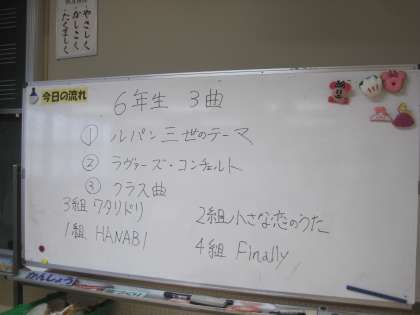 やさしく
かしこく
たくましく
今日の流れ
6年生 3曲
① ルパン三世のテーマ
② ラヴァーズ・コンチェルト
③ クラス曲
3組 ワタリドリ
2組 小さな恋のうた
1組 HANABI
4組 Finally
かんしょう